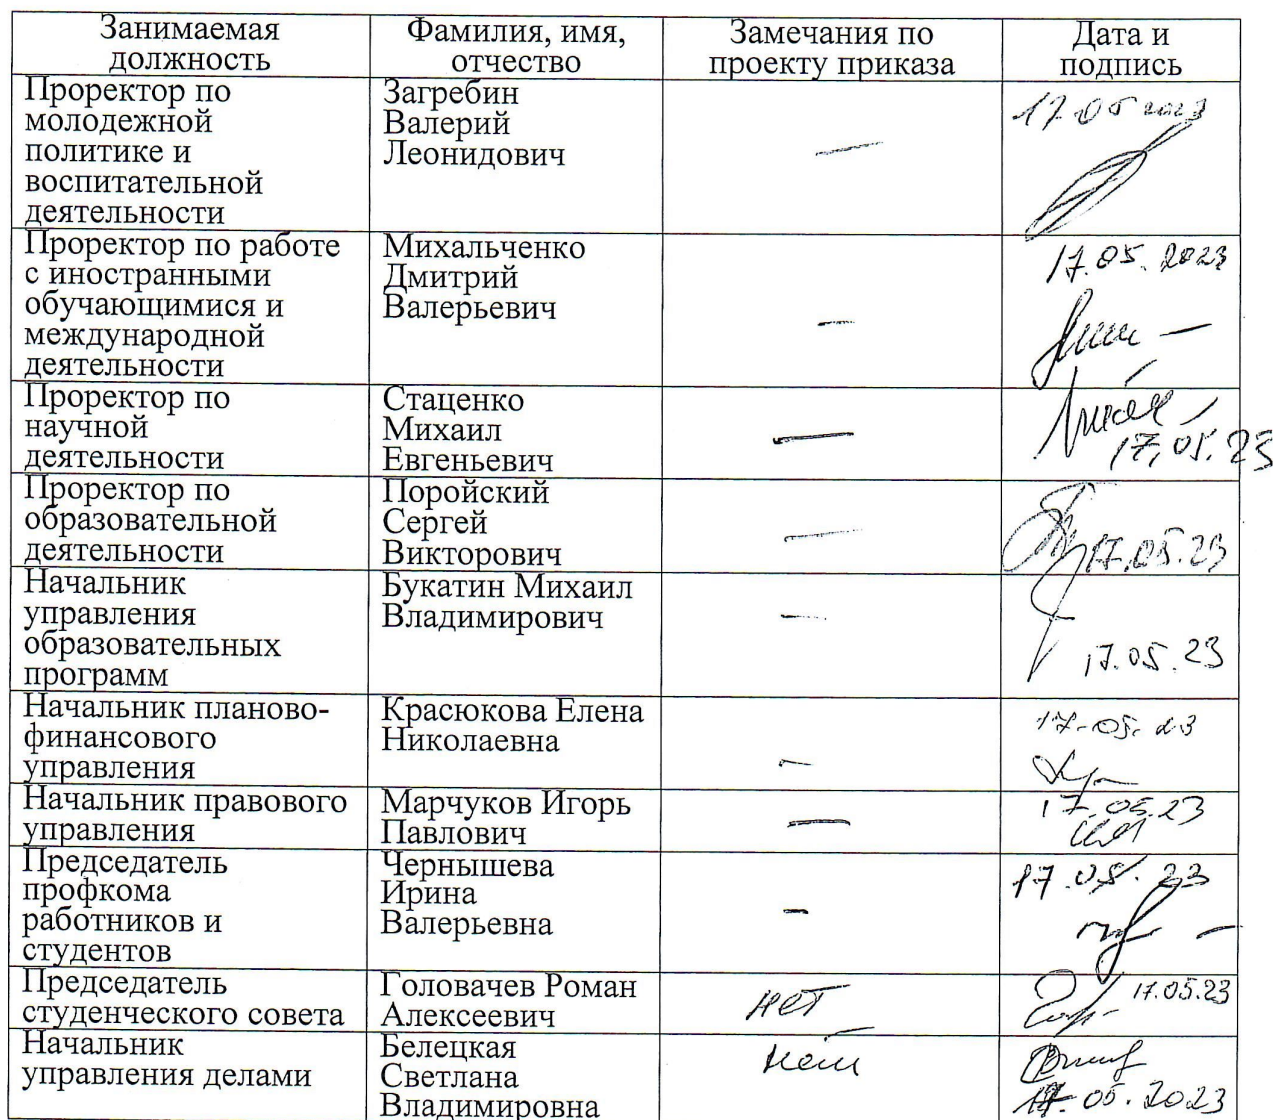 Занимаемая
должность
Фамилия, имя,
отчество
Замечания по
проекту приказа
Дата и
подпись
Проректор по
молодежной
политике и
воспитательной
деятельности
Загребин
Валерий
Леонидович
—
17.05 2023
Проректор по работе
с иностранными
обучающимися и
международной
деятельности
Михальченко
Дмитрий
Валерьевич
—
17.05.2023
Проректор по
научной
деятельности
Стаценко
Михаил
Евгеньевич
—
17.05.23
Проректор по
образовательной
деятельности
Поройский
Сергей
Викторович
—
17.05.23
Начальник
управления
образовательных
программ
Букатин Михаил
Владимирович
—
17.05.23
Начальник планово-
финансового
управления
Красюкова Елена
Николаевна
—
17.05.23
Начальник правового
управления
Марчуков Игорь
Павлович
—
17.05.23
Председатель
профкома
работников и
студентов
Чернышева
Ирина
Валерьевна
—
17.05.23
Председатель
студенческого совета
Головачев Роман
Алексеевич
нет
17.05.23
Начальник
управления делами
Белецкая
Светлана
Владимировна
нет
17.05.2023